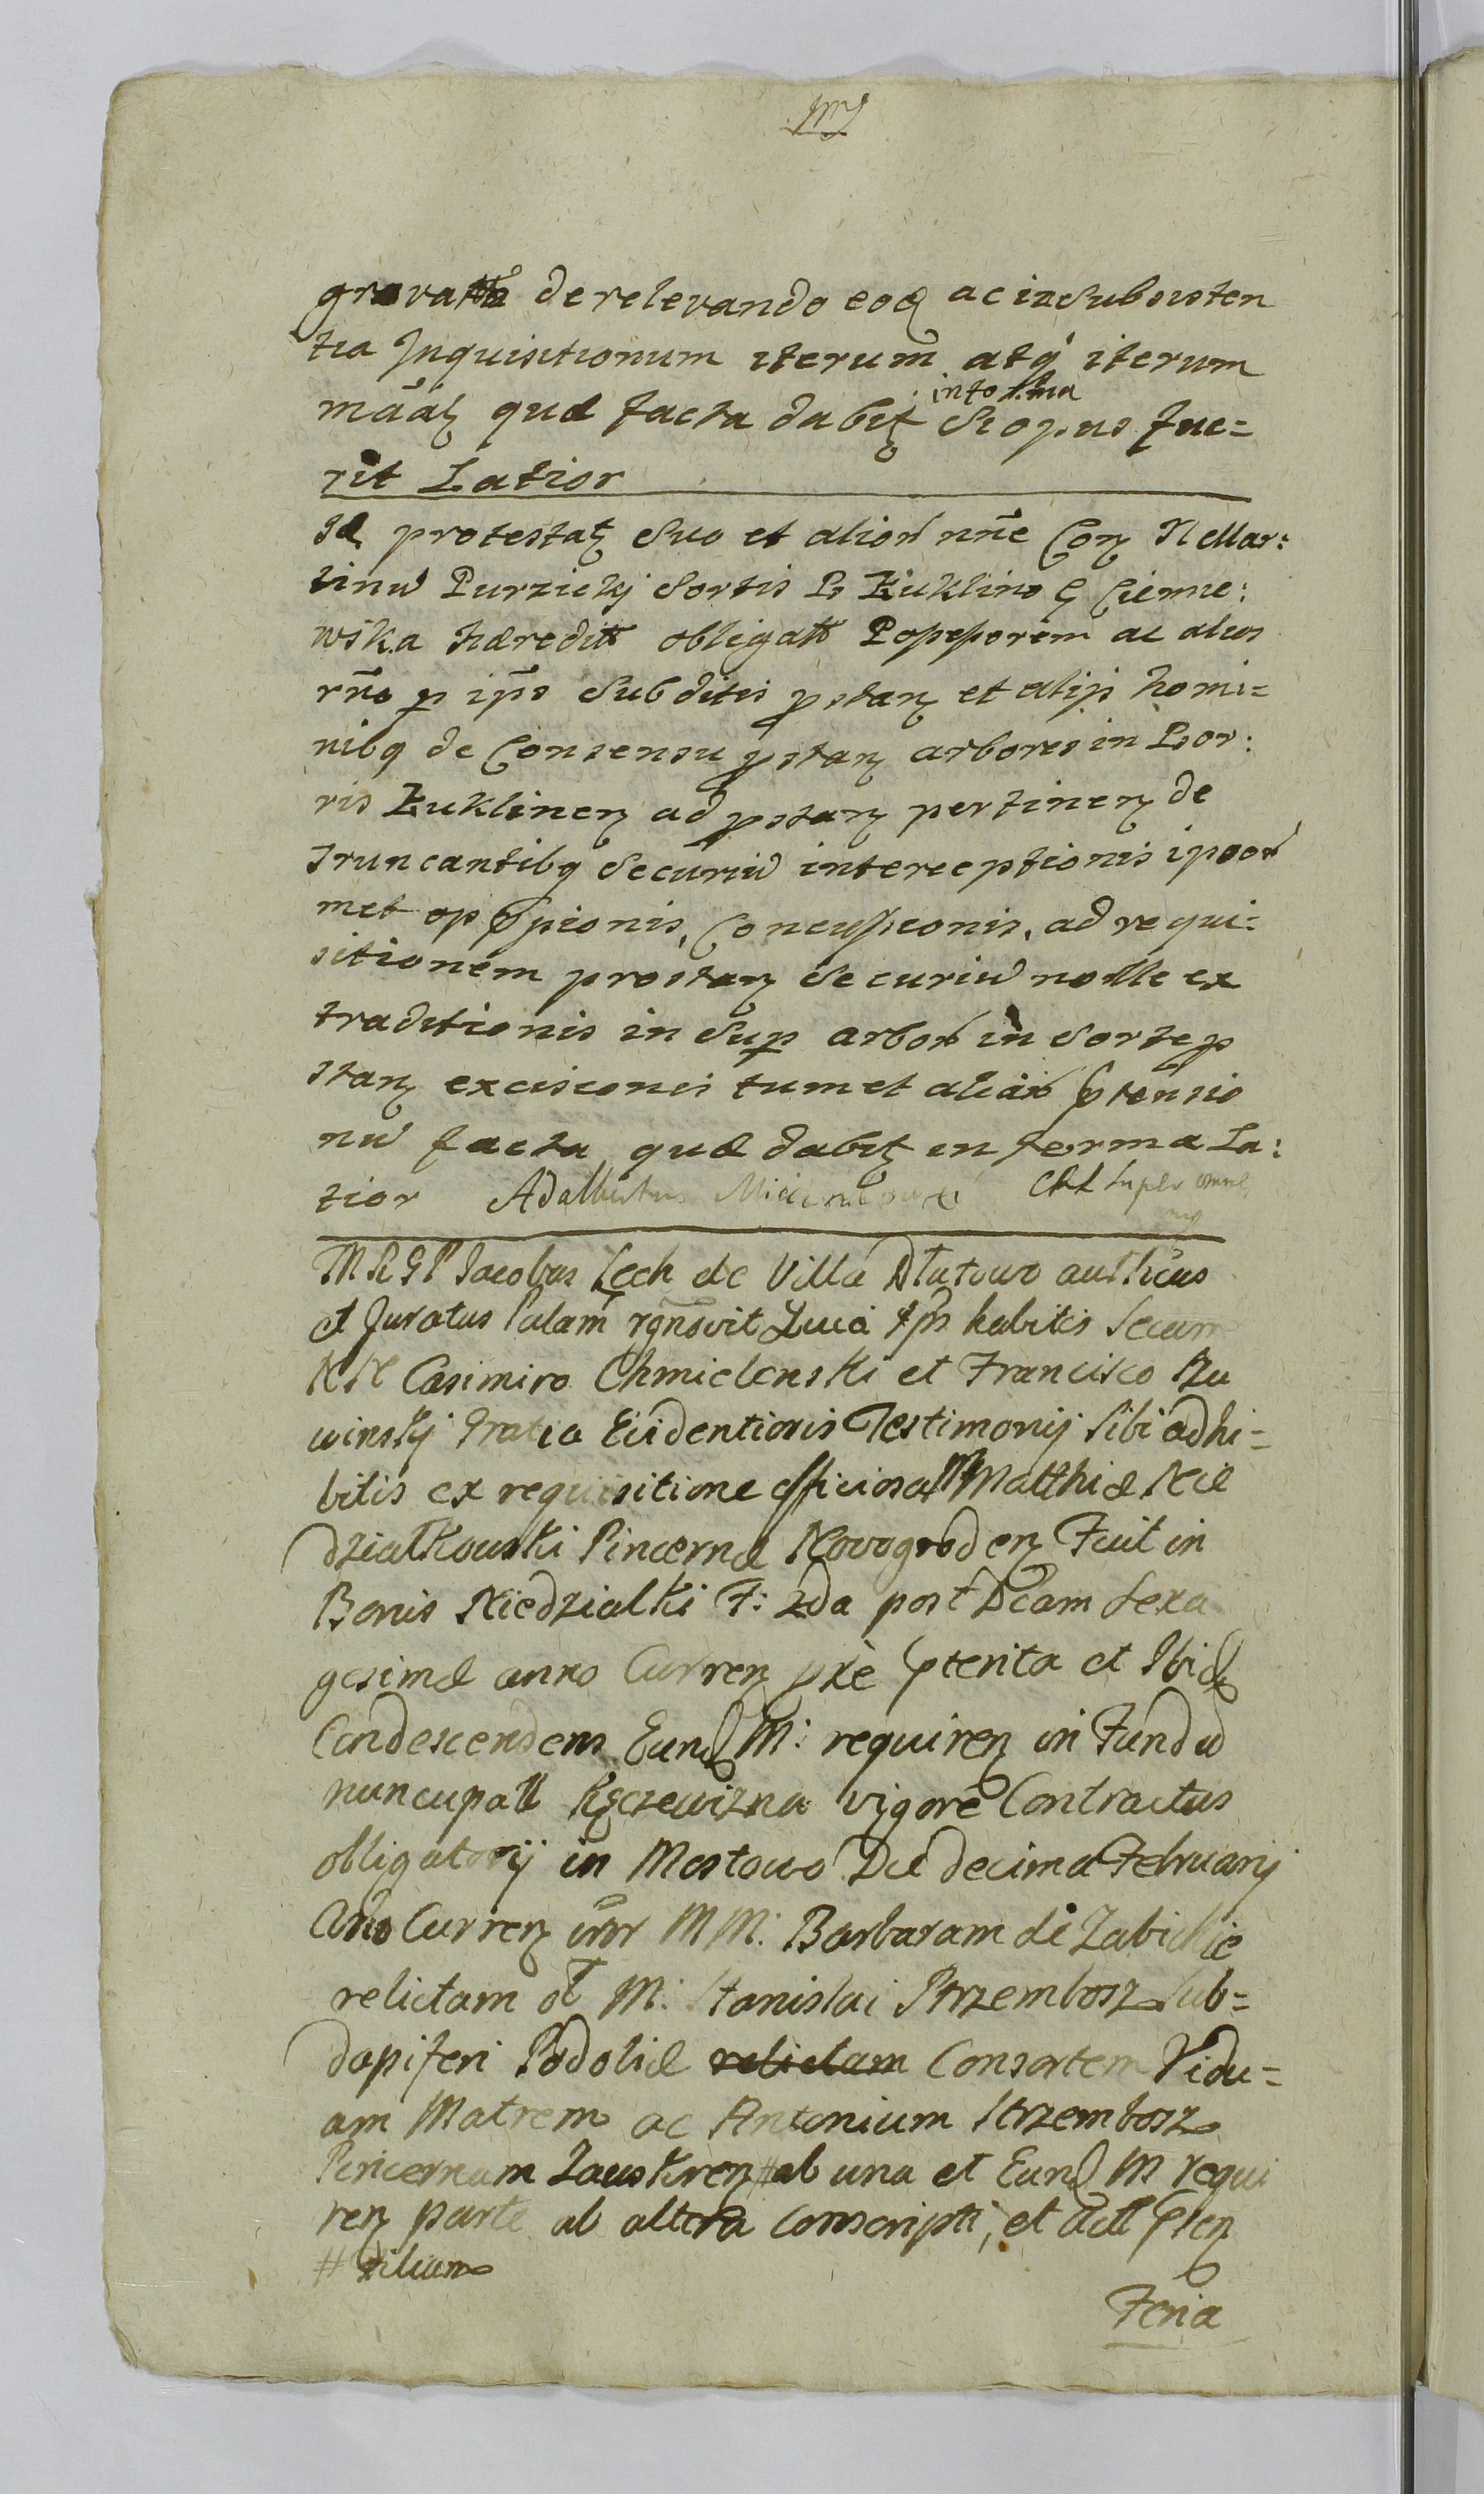 gravatt de relevando eoq ac in Subsisten
tia Inquisitionum iterum atq iterum
mããtz quæ facta dabitz Si opus fue=
in forma
rit Latior
Id protestatz Suo et alior nñe Con N Mar:
tinu Purzickj Sortis in Żuklino G Ciemnie:
wska hæreditt obligatt Possessorem ac alios
rñe p ips Subditis pstan et alijs homi=
nibq de Consensu pstan arbores in Bor:
ris Żuklinen ad pstan pertinen de
truncantibq Securiu interceptionis ipsor
met oppssionis, Concussionis, ad requi:
sitionem prostan Securiu nolle ex
traditionis in Sup arbor in Sorte p
stan excisionis tum et aliar ptensio
nu facta quæ dabitz in forma La:
tior Adalbertus super omne
M R G P Jacobus Lech de Villa Dłutowo aulicus
et Juratus Palam rgnovit Quia ips habitis Secum
NN Casimiro Chmielenski et Francisco Ru
winskj Gratia Evidentioris Testimonij Sibi adhi=
bitis ex requisitione officiosa M Matthiæ Nie
dzialkowski Pincernæ Novogroden Fuit in
Bonis Niedzialki F: 2da post Dcam Sexa
gesimæ anno Curren pxè pterita et Ibid
Condescendens Eund M: requiren in Fundu
nuncupatt Kęczewizna vigore Contractus
obligatorij in Mostowo Die decima Februarij
Anno Curren intr MM: Barbaram de Zabickie
relictam ol M: Stanislai Strzembosz Sub=
dapiferi Podoliæ relictam Consortem Vidu=
am Matrem ac Antonium Strzembosz
Pincernam Zauskren # ab una et Eund M requi
ren parte ab altera conscripti, et Actt pten
# filium
Feria